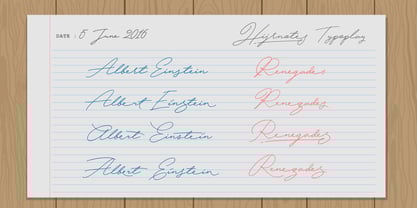 DATE : 5 June 2016 Hijrnotes Typoplay
Albert Einstein Renegades
Albert Einstein Renegades
Albert Einstein Renegades
Albert Einstein Renegades